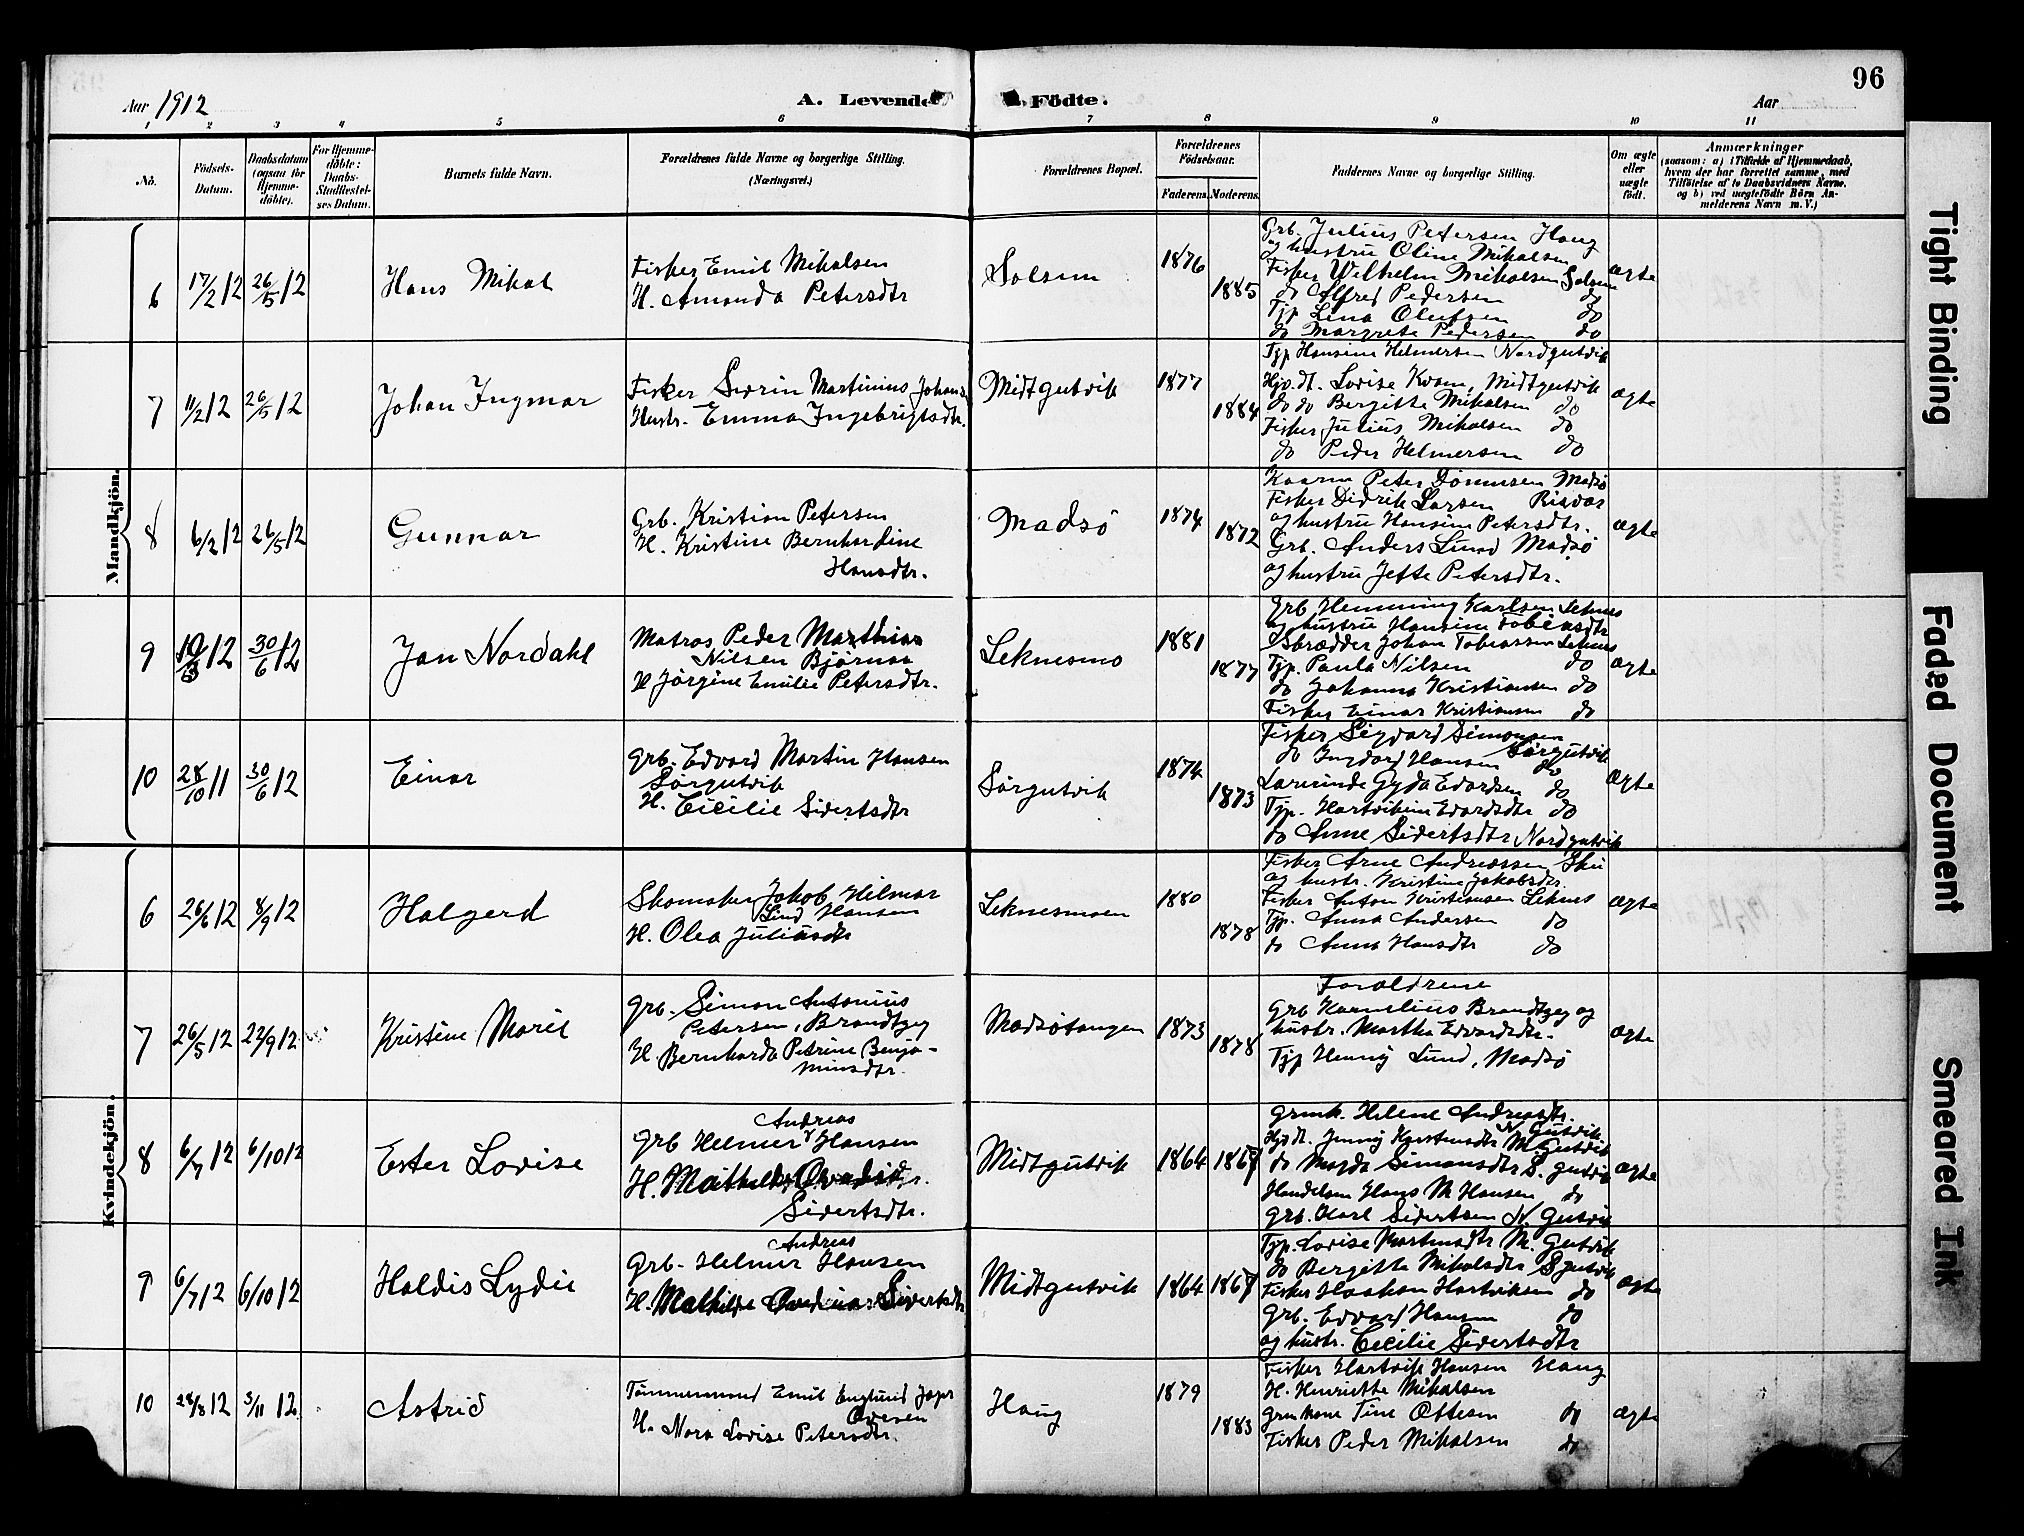 96
Aar 1912
A. Levende
Födte.
Aar
1 2 3 4 5 6 7 8 9 10 11
No.
Födsels-
Datum.
Daabsdatum
(ogsaa for
Hjemme-
döbte).
For Hjemme-
döbte:
Daabs-
Stadfæstel-
ses Datum.
Barnets fulde Navn.
Forældrenes fulde Navne og borgerlige Stilling.
(Næringsvei.)
Forældrenes Bopæl.
Forældrenes
Födselsaar.
Faderens. Moderens.
Faddernes Navne og borgerlige Stilling.
Om ægte
eller
uægte
födt.
Anmærkninger
(saasom: a) i Tilfælde af Hjemmedaab,
hvem der har forrettet samme, med
Tilföielse af to Daabsvidners Navne.
og b) ved uægtefödte Börn An-
melderens Navn m. V.)
Mandkjön.
6 17/2 12 26/5 12 Hans Mikal
Fisker Emil Mikalsen
H. Amanda Petersdtr
Solsem 1876 1885
Grb. Julius Petersen Haug
og hustru Oline Mikalsen
Fisker Wilhelm Mikalsen Solsem
do Alfred Pedersen do
Tjp Lina Olufsen do
do Margrete Pedersen do
ægte
7 11/2 12 26/5 12 Johan Ingmar
Fisker Sivrin Martinius Johans
Hustr. Emma Ingebrigtsdtr.
Midtgutvik 1877 1884
Tjp Hansine Helmersen Nordgutvik
Hjp.dt. Lovise Kvam, Midtgutvik
do do Bergitte Mikalsen do
Fisker Julius Mikalsen do
do Peder Helmersen do
ægte
8 6/2 12 26/5 12 Gunnar
Grb. Kristian Petersen
H. Kristine Bernhardine
Hansdtr.
Madsö 1874 1872
Kaarm Peter Dønnesen Madsö
Fisker Didrik Larsen Risvær
og hustru Hansine Petersdtr.
Grb. Anders Lund Madsö
og hustru Jette Petersdtr.
ægte
9 10/3 12 30/6 12 Jan Nordahl
Matros Peder Marthias
Nilsen Bjørnar
H Jørgine Emilie Petersdtr.
Leknesmo 1881 1877
Grb Hemming Karlsen Leknes
og hustru Hansine Tobiasdtr
Johan Tobiassen Leknes
Tjp. Paula Nilsen do
do Johanna Kristiansen do
Fisker Einar Kristiansen do
ægte
10 28/10 11 30/6 12 Einar
Grb. Edvard Martin Hansen
Sørgutvik
H. Cicilie Sivertsdtr
Sørgutvik 1874 1873
Fisker Sigvard Simonsen
Sørgutvik
do Ingvard Hansen do
Lærerinde Gyda Edvardsen do
Tjp. Hartvikine Edvardsdtr do
do Anne Sivertsdtr Nordgutvik
ægte
Kvindekjön.
6 26/6 12 8/9 12 Halgerd
Skomaker Jakob Hilmar
Lind Hansen
H. Olea Juliusdtr
Leknesmoen 1880 1878
Fisker Arne Andreassen
og hustr. Kristine Jakobsdtr.
Fisker Anton Kristiansen Leknes
Tjp. Anna Andersen do
do Anna Hansdtr do
ægte
7 26/5 12 22/9 12 Kristine Marie
Grb. Simon Antonius
Petersen, Brandtzeg
H. Bernharda Petrine Benja-
minsdtr.
Madsøtangen 1873 1878
Foraldrene
Grb Kornelius Brandtzeg og
hustr. Martha Edvardsdtr.
Tjp Henny Lund, Madsö
ægte
8 6/7 12 6/10 12 Ester Lovise
Andreas
Grb Helmer Hansen
H. Mathilde
Sivertsdtr.
Midtgutvik 1864 1867
Grmk. Helene Andreasdtr.
N. Gutvik
Hjp dt. Jenny Martinsdtr M. Gutvik
do Magda Simonsdtr S. gutvik
Handelsm Hans M Hansen do
Grb. Karl Sivertsen N. Gutvik
ægte
9 6/7 12 6/10 12 Haldis Lydie
Andreas
Grb. Helmer Hansen
H. Mathilde Ovedina Sivertsdtr
Midtgutvik 1864 1867
Tjp. Lovise Martinsdtr M. Gutvik
do Bergitte Mikalsdtr S gutvik
Fisker Haakon Hartviksen do
Grb. Edvard Hansen do
og hustr. Cecilie Sivertsdtr
ægte
10 28/8 12 3/11 12 Astrid
Tömmermand Emil Englund Jøpr
Ovesen
H. Nora Lovise Petersdtr.
Haug 1879 1883
Fisker Hartvik Hansen Haug
H. Henriette Mikalsen
Grmkone Tine Ottesen do
Fisker Peder Mikalsen do
ægte
Tight Binding
Faded Document
Smeared Ink